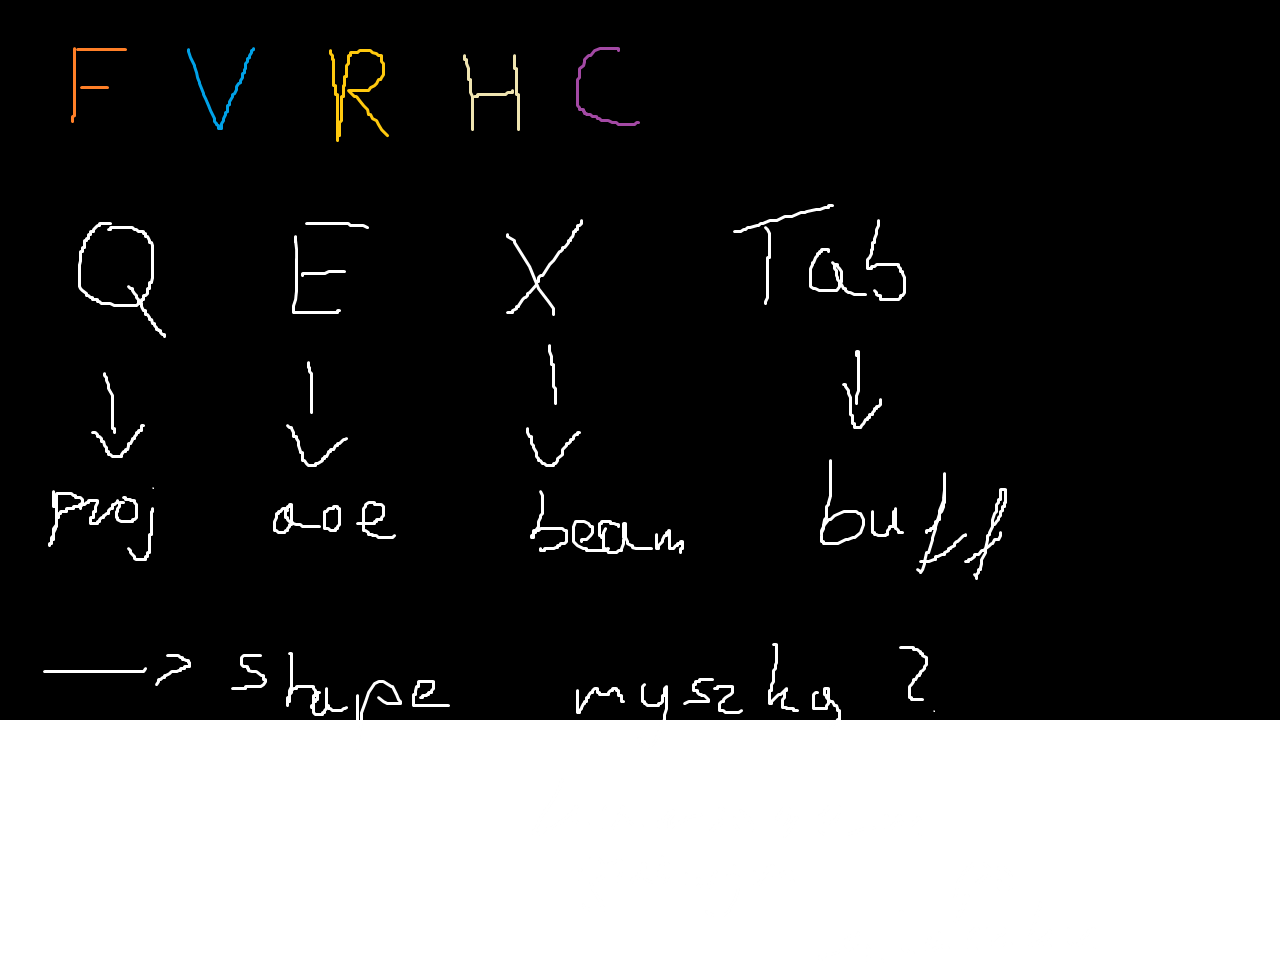 F V R H C
Q E X Tab
↓ ↓ ↓ ↓
proj aoe beam buff
→ shape myszką ?